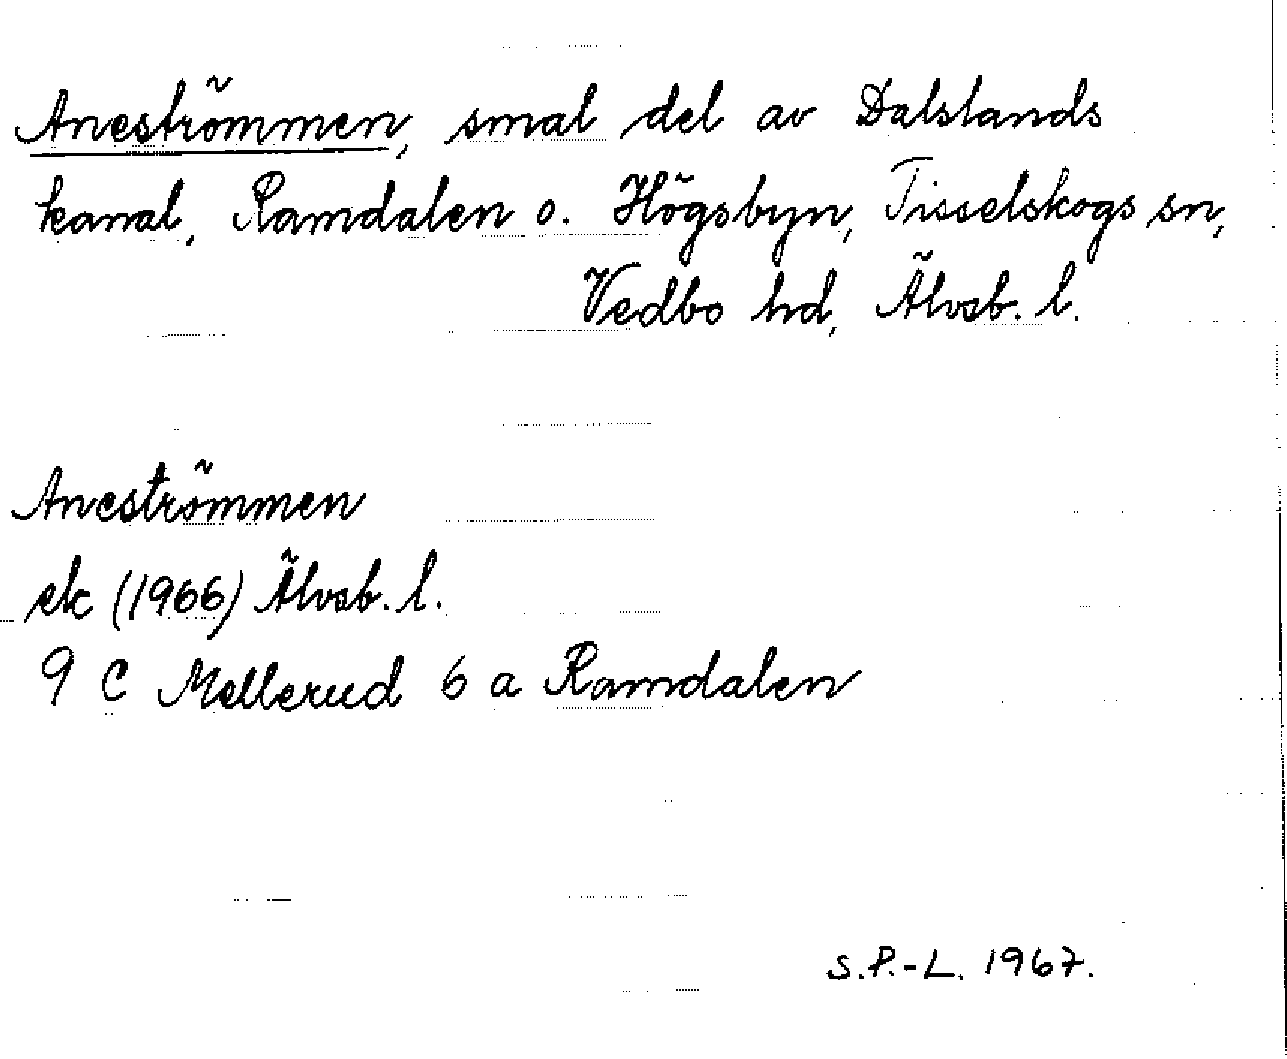 Aneströmmen, smal del av Dalslands
kanal, Ramdalen o. Högsbyn, Tisselskogs sn,
Vedbo hd, Älvsb. l.
Aneströmmen
ek (1966) Älvsb. l.
9 C Mellerud 6 a Ramdalen
S.P.-L. 1967.